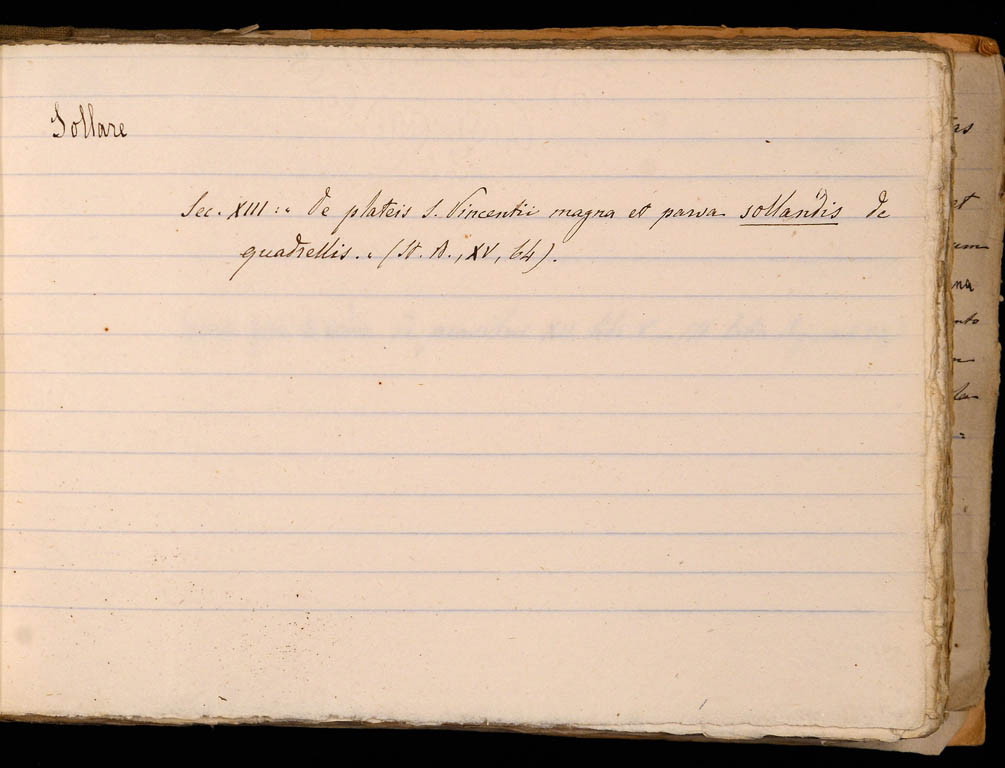 Sollare
Sec. XIII: « De plateis S. Vincentii magna et parva sollandis de
quadrellis. » (St. A., XV, 64).